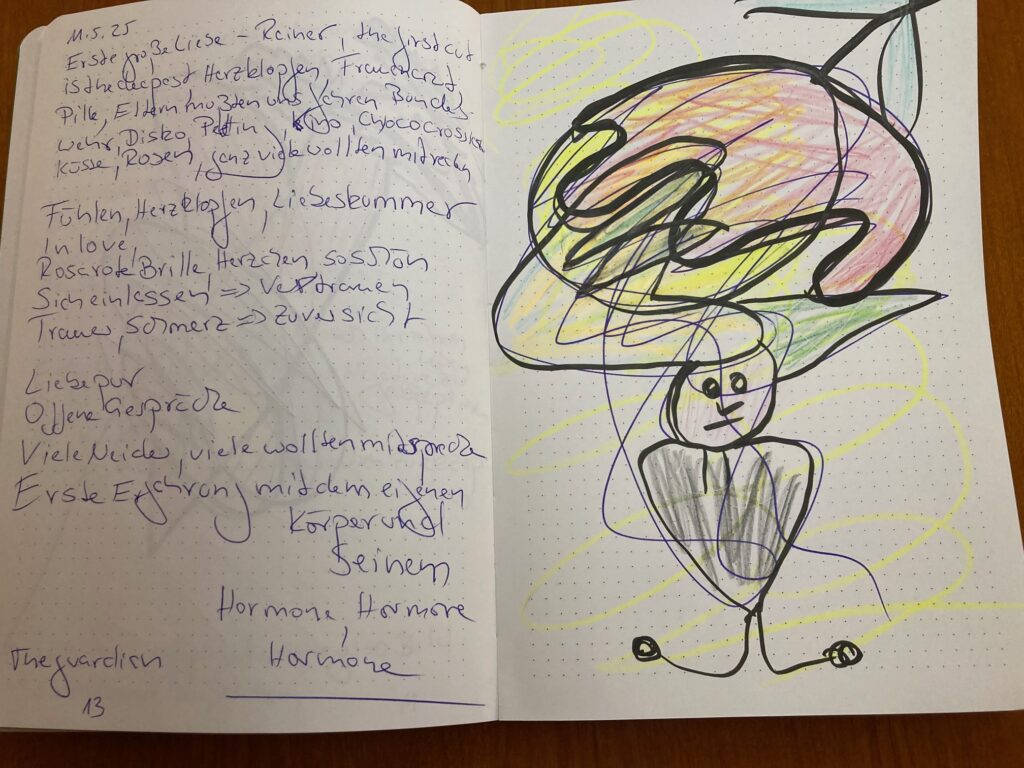 11.5.25
Erste große Liebe – Reiner, the first cut
is the deepest Herzklopfen, Frauenarzt
Pille, Eltern mußten uns fahren Bundes-
wehr, Disko, Kino, Chococrossies
Küsse, Rosen, ganz viele wollten mitreden
Fühlen, Herzklopfen, Liebeskummer
In love,
Rosarote Brille, Herzchen
Sich einlassen => Vertrauen
Trauer, Schmerz => Zuversicht
Liebe pur
Offene Gespräche
Viele Neider, viele wollten
Erste Erfahrung mit dem eigenen
Körper und
Seinem
Hormone, Hormone,
Hormone
The guardian
13